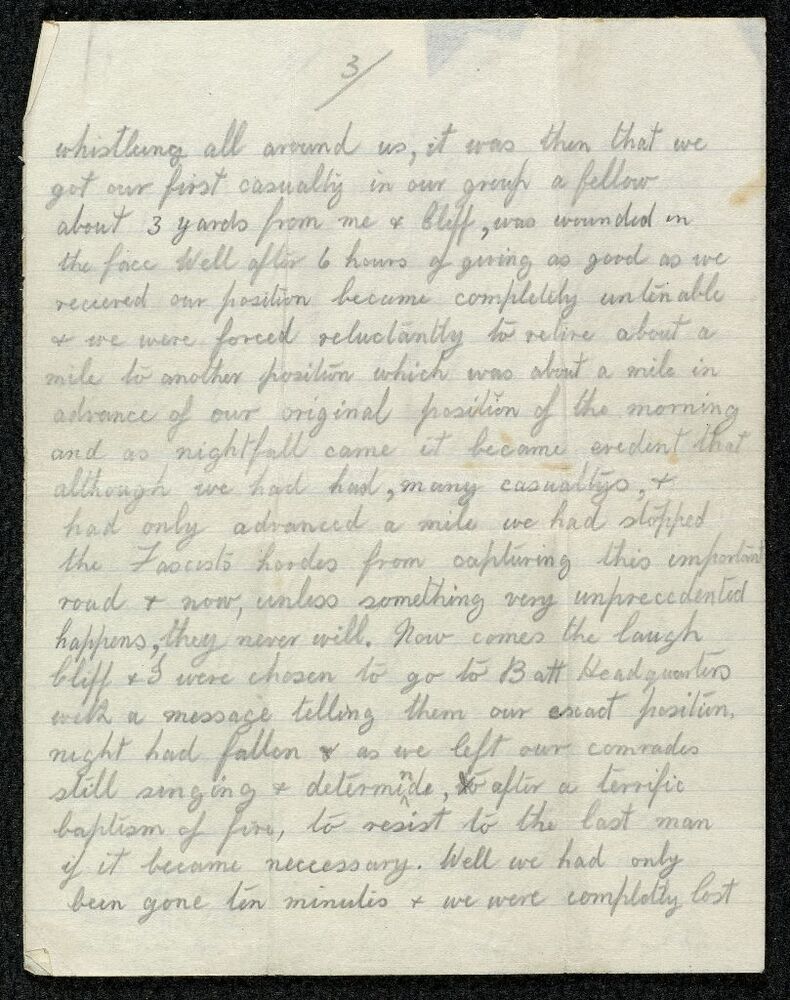 3/
whistleing all around us, it was then that we
got our first casualty in our group a fellow
about 3 yards from me & Cliff, was wounded in
the face Well after 6 hours of giving as good as we
recieved our position became completely untenable
& we were forced reluctantly to retire about a
mile to another position which was about a mile in
advance of our original position of the morning
and as nightfall came it became evedent that
although we had had, many casualtys, &
had only advanced a mile we had stopped
the Fascists hordes from capturing this important
road & now, unless something very unprecedented
happens, they never will. Now comes the laugh
Cliff & I were chosen to go to Batt Headquarters
with a message telling them our exact position,
night had fallen & as we left our comrades
still singing & determinde, after a terrific
baptism of fire, to resist to the last man
if it became neccessary. Well we had only
been gone ten minutes & we were completly lost